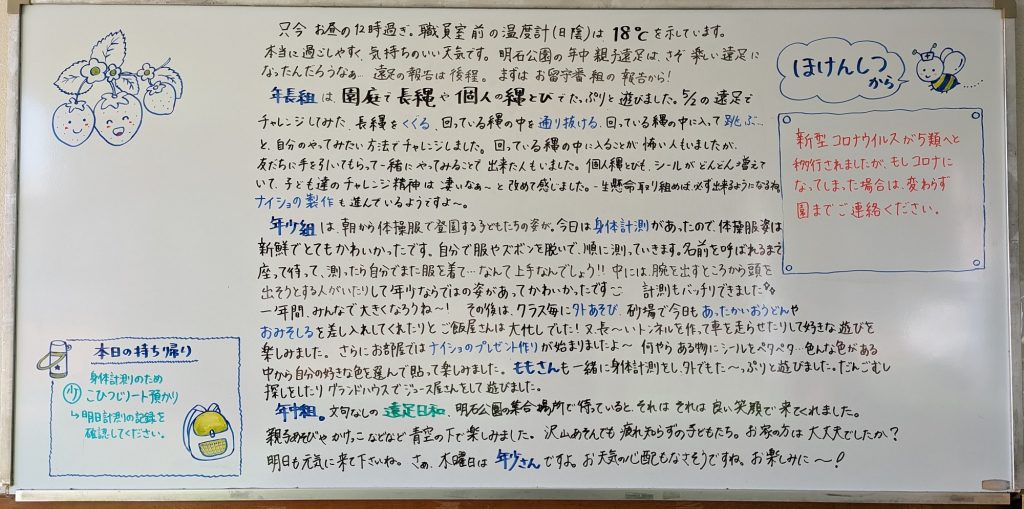 只今 お昼の12時過ぎ。職員室前の温度計(日陰)は 18℃を示しています。
本当に過ごしやすく、気持ちのいい天気です。明石公園の年中親子遠足は、さぞ楽しい遠足に
なったんだろうなぁ… 遠足の報告は後程。まずはお留守番組の報告から!
年長組は、園庭で長縄や個人の縄とびでたっぷりと遊びました。5/2の遠足で
チャレンジしてみた、長縄をくぐる、回っている縄の中を通り抜ける、回っている縄の中に入って跳ぶ…
と、自分のやってみたい方法でチャレンジしました。回っている縄の中に入ることが怖い人もいましたが、
友だちに手を引いてもらって一緒にやってみることで出来た人もいました。個人縄とびも、シールがどんどん増えて
いて、子ども達のチャレンジ精神は凄いなぁ〜と改めて感じました。一生懸命取り組めば、必ず出来るようになるね
ナイショの製作も進んでいるようですよ〜。
年少組は、朝から体操服で登園する子どもたちの姿が。今日は身体計測があったので、体操服姿は
新鮮でとてもかわいかったです。自分で服やズボンを脱いで、順に測っていきます。名前を呼ばれるまで
座って待って、測ったら自分でまた服を着て…なんて上手なんでしょう!! 中には、腕を出すところから頭を
出そうとする人がいたりして年少ならではの姿があってかわいかったです 計測もバッチリできました
一年間、みんなで大きくなろうね〜! その後は、クラス毎に外あそび、砂場で今日もあったかいおうどんや
おみそしるを差し入れしてくれたりとご飯屋さんは大忙しでした!又、長〜いトンネルを作って車を走らせたりして好きな遊びを
楽しみました。さらにお部屋ではナイショのプレゼント作りが始まりましたよ〜 何やらある物にシールをペタペタ…色んな色がある
中から自分の好きな色を選んで貼って楽しみました。ももさんも一緒に身体計測をし、外でもた〜っぷりと遊びました。だんごむし
探しをしたりグランドハウスでジュース屋さんをして遊びました。
年中組。文句なしの遠足日和、明石公園の集合場所で待っていると、それはそれは良い笑顔で来てくれました。
親子あそびやかけっこなどなど青空の下で楽しみました。沢山あそんでも疲れ知らずの子どもたち。お家の方は大丈夫でしたか?
明日も元気に来て下さいね。さぁ、木曜日は年少さんですよ。お天気の心配もなさそうですね。お楽しみに〜!
ほけんしつ
から
新型コロナウイルスが5類へと
移行されましたが、もしコロナに
なってしまった場合は、変わらず
園までご連絡ください。
本日の持ち帰り
少
身体計測のため
こひつじノート預かり
↳明日計測の記録を
確認してください。